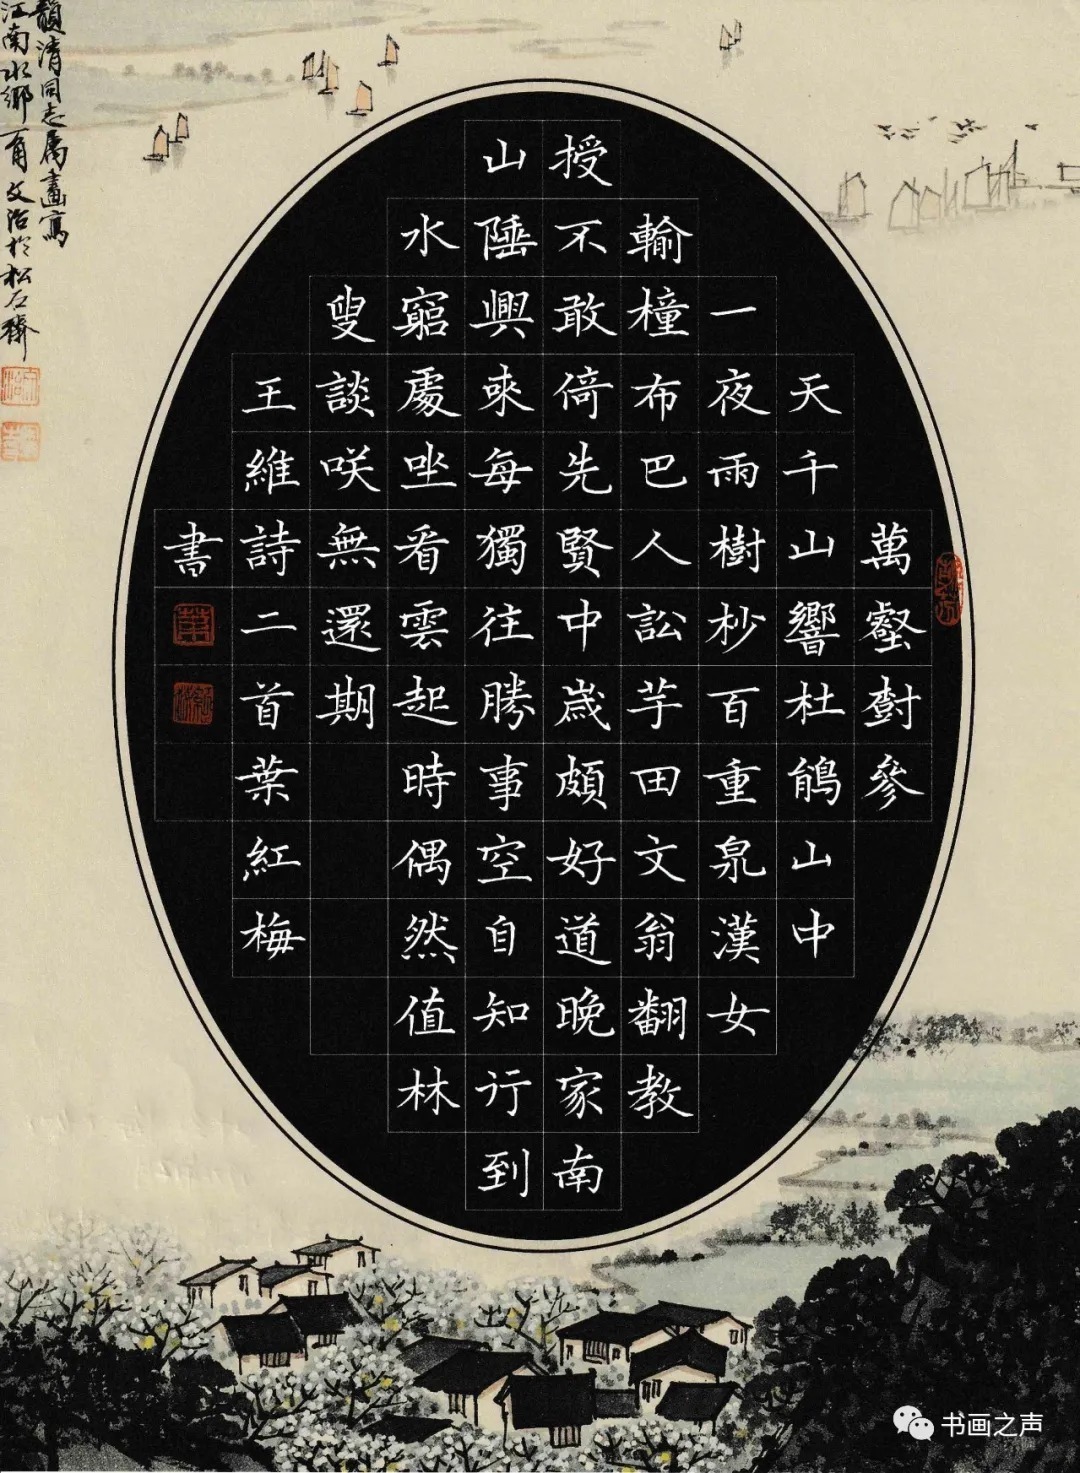 萬壑對參
天千山響杜鵑山中
一夜雨樹杪百重泉漢女
輸橦布巴人訟芋田文翁翻教
授不敢倚先賢中歲頗好道晚家南
山陲興來每獨往勝事空自知行到
水窮處坐看雲起時偶然值林
叟談咲無還期
王維詩二首葉紅梅
書
韻清同志属畫寫
江南水鄉一角文治於松石齋
书画之声